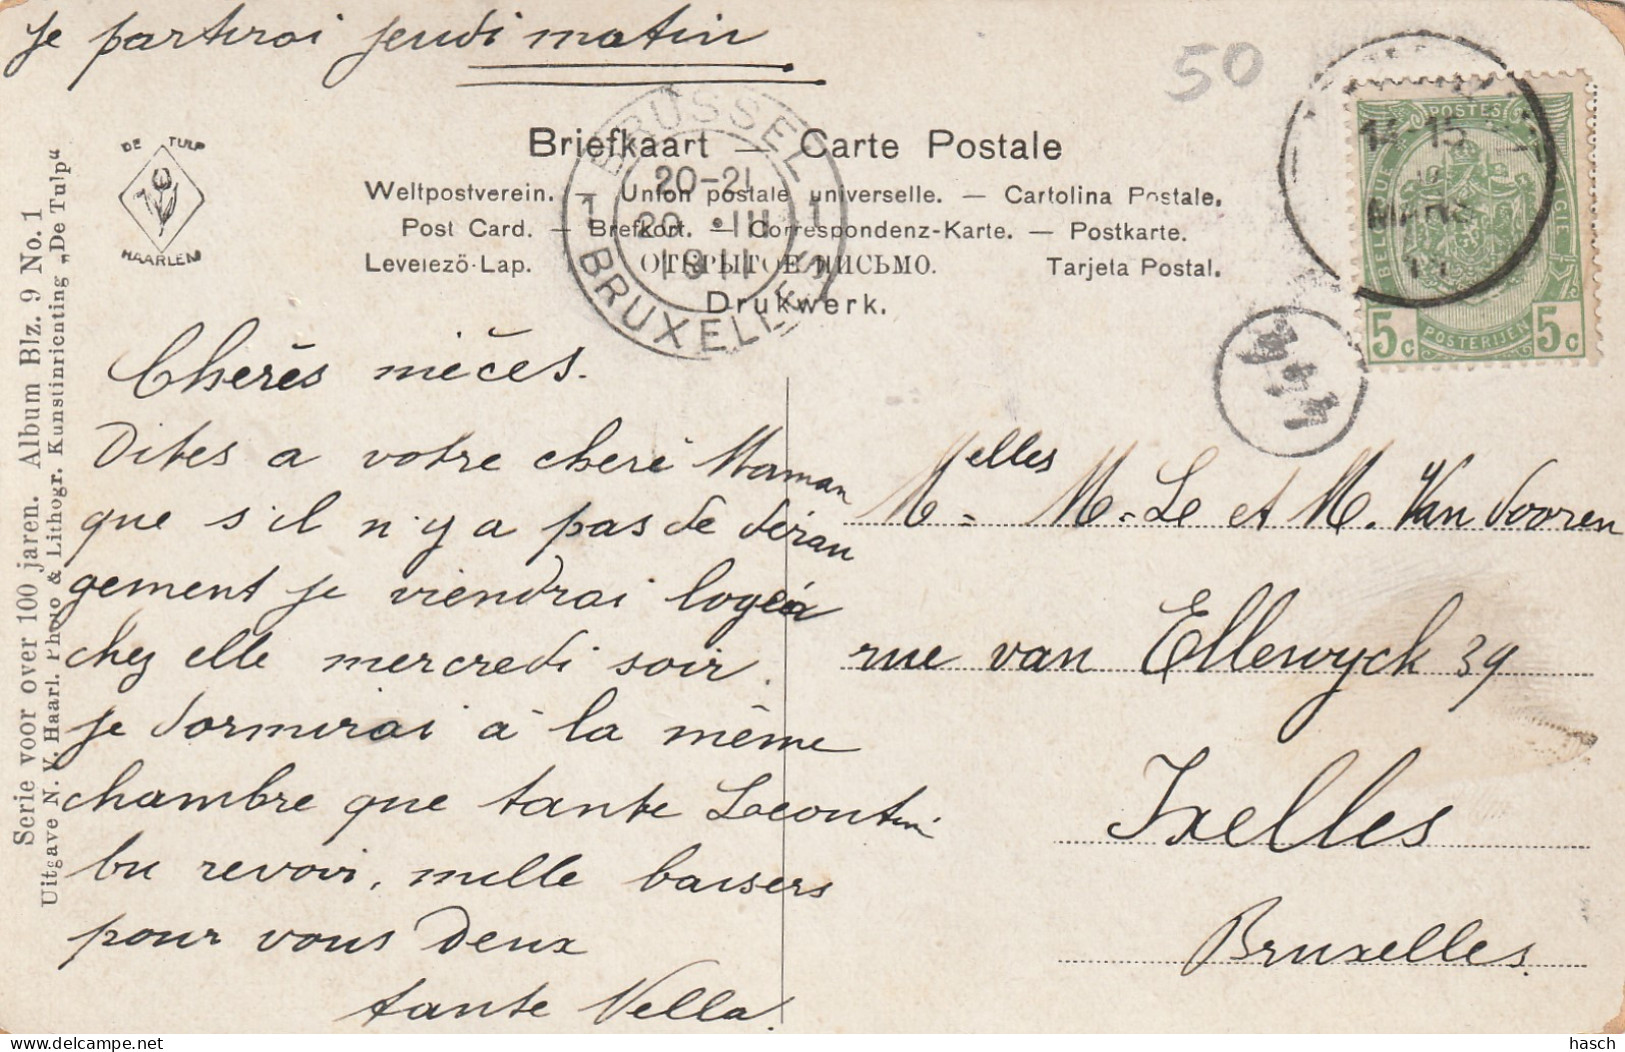 je partirai jeudi matin
50
DE TULP
HAARLEM
BRUSSEL
20-21
20 · III
1911
BRUXELLES
1 1
14-15
5c 5c
POSTES
BELGIQUE
BELGIE
POSTERIJEN
Briefkaart — Carte Postale
Weltpostverein. — Union postale universelle. — Cartolina Postale.
Post Card. — Brefkort. — Correspondenz-Karte. — Postkarte.
Levelező-Lap. ОТКРЫТОЕ ПИСЬМО. Tarjeta Postal.
Drukwerk.
Serie voor over 100 jaren. Album Blz. 9 No. 1
Uitgave N. V. Haarl. Photo & Lithogr. Kunstinrichting „De Tulp“
Chères nièces.
Dites a votre cheré Maman
que s'il n'y a pas de déran
gement je viendrai loger
chez elle mercredi soir.
je dormirai à la même
chambre que tante
bu revoir, mille baisers
pour vous deux
tante Nella.
Melles M. Le et M. Van Dooren
rue van Ellewyck 39
Ixelles
Bruxelles.
hasch